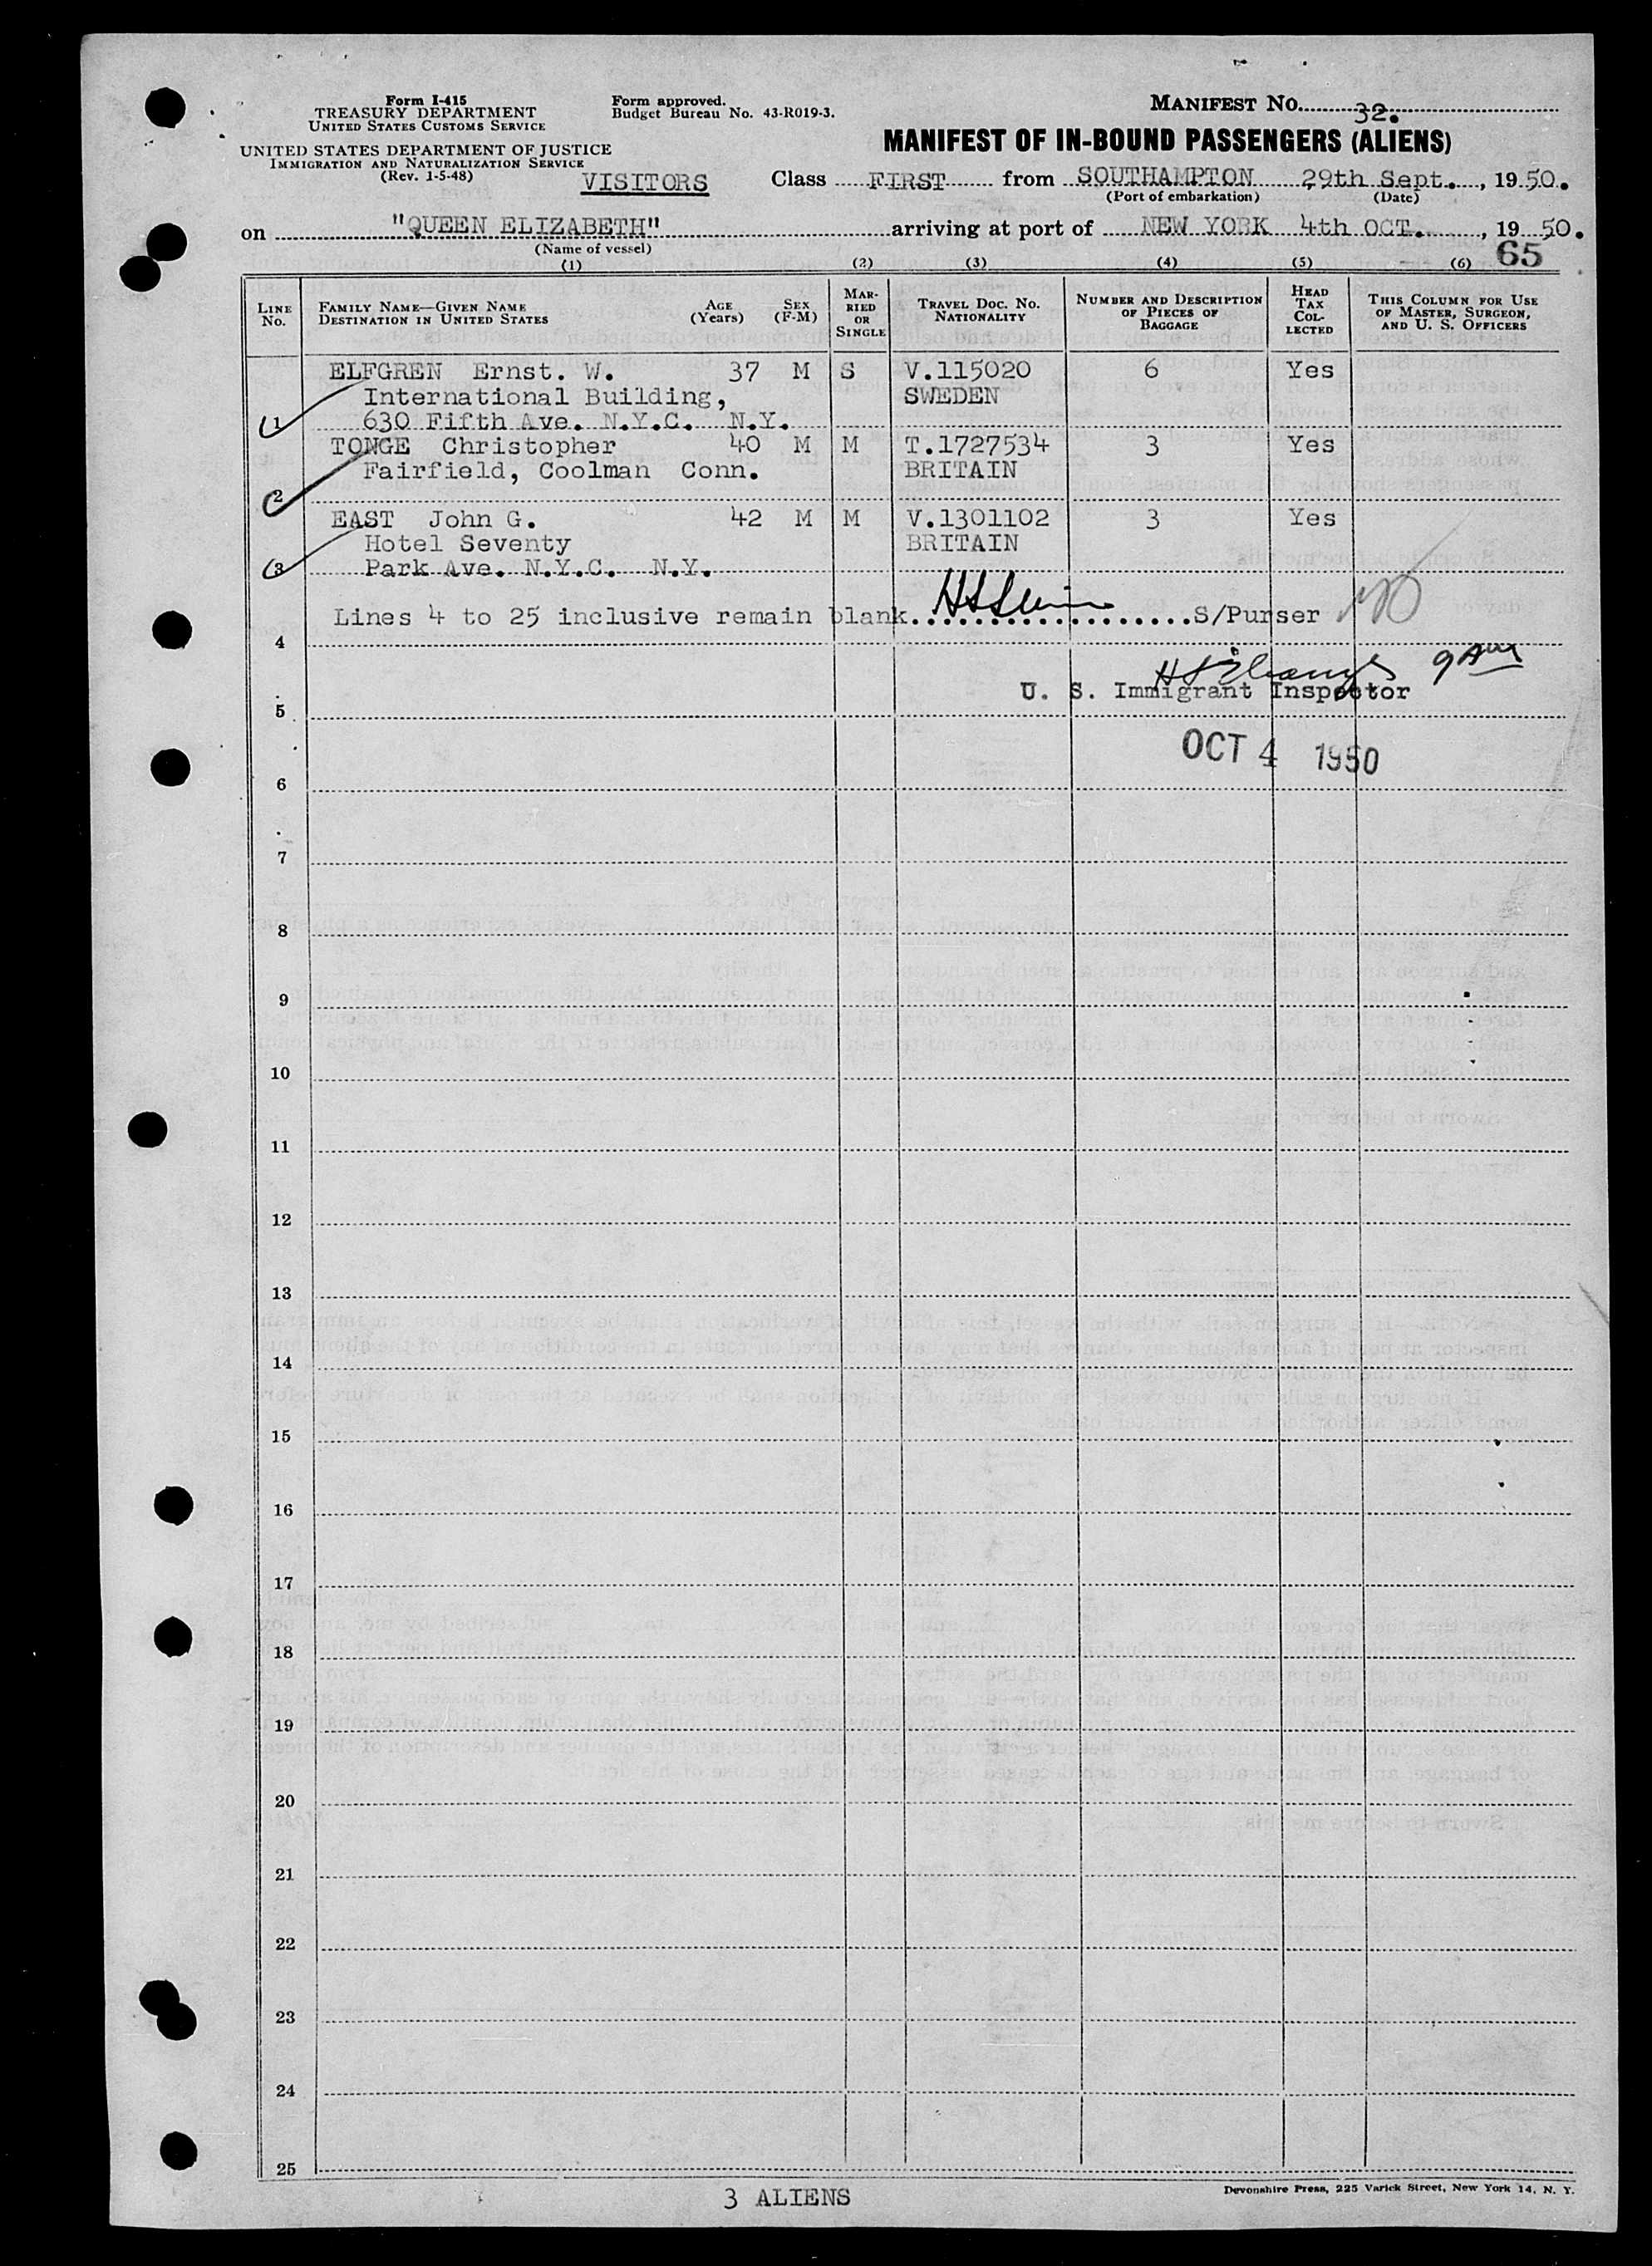 Form I-415
TREASURY DEPARTMENT
UNITED STATES CUSTOMS SERVICE
UNITED STATES DEPARTMENT OF JUSTICE
IMMIGRATION AND NATURALIZATION SERVICE
(Rev. 1-5-48)
Form approved.
Budget Bureau No. 43-R019-3.
MANIFEST No. 32.
MANIFEST OF IN-BOUND PASSENGERS (ALIENS)
VISITORS Class FIRST from SOUTHAMPTON 29th Sept., 1950.
(Port of embarkation) (Date)
on "QUEEN ELIZABETH" arriving at port of NEW YORK 4th OCT., 1950.
(Name of vessel)
65
(1) (2) (3) (4) (5) (6)
LINE No. FAMILY NAME—GIVEN NAME DESTINATION IN UNITED STATES AGE (Years) SEX (F-M) MARRIED OR SINGLE TRAVEL DOC. No. NATIONALITY NUMBER AND DESCRIPTION OF PIECES OF BAGGAGE HEAD TAX COLLECTED THIS COLUMN FOR USE OF MASTER, SURGEON, AND U. S. OFFICERS
ELFGREN Ernst. W. 37 M S V.115020 6 Yes
International Building, SWEDEN
1 630 Fifth Ave. N.Y.C. N.Y.
TONGE Christopher 40 M M T.1727534 3 Yes
Fairfield, Coolman Conn. BRITAIN
2
EAST John G. 42 M M V.1301102 3 Yes
Hotel Seventy BRITAIN
3 Park Ave. N.Y.C. N.Y.
Lines 4 to 25 inclusive remain blank....................S/Purser
4
9 AM
U. S. Immigrant Inspector
5
OCT 4 1950
6
7
8
9
10
11
12
13
14
15
16
17
18
19
20
21
22
23
24
25
3 ALIENS
Devonshire Press, 225 Varick Street, New York 14, N. Y.